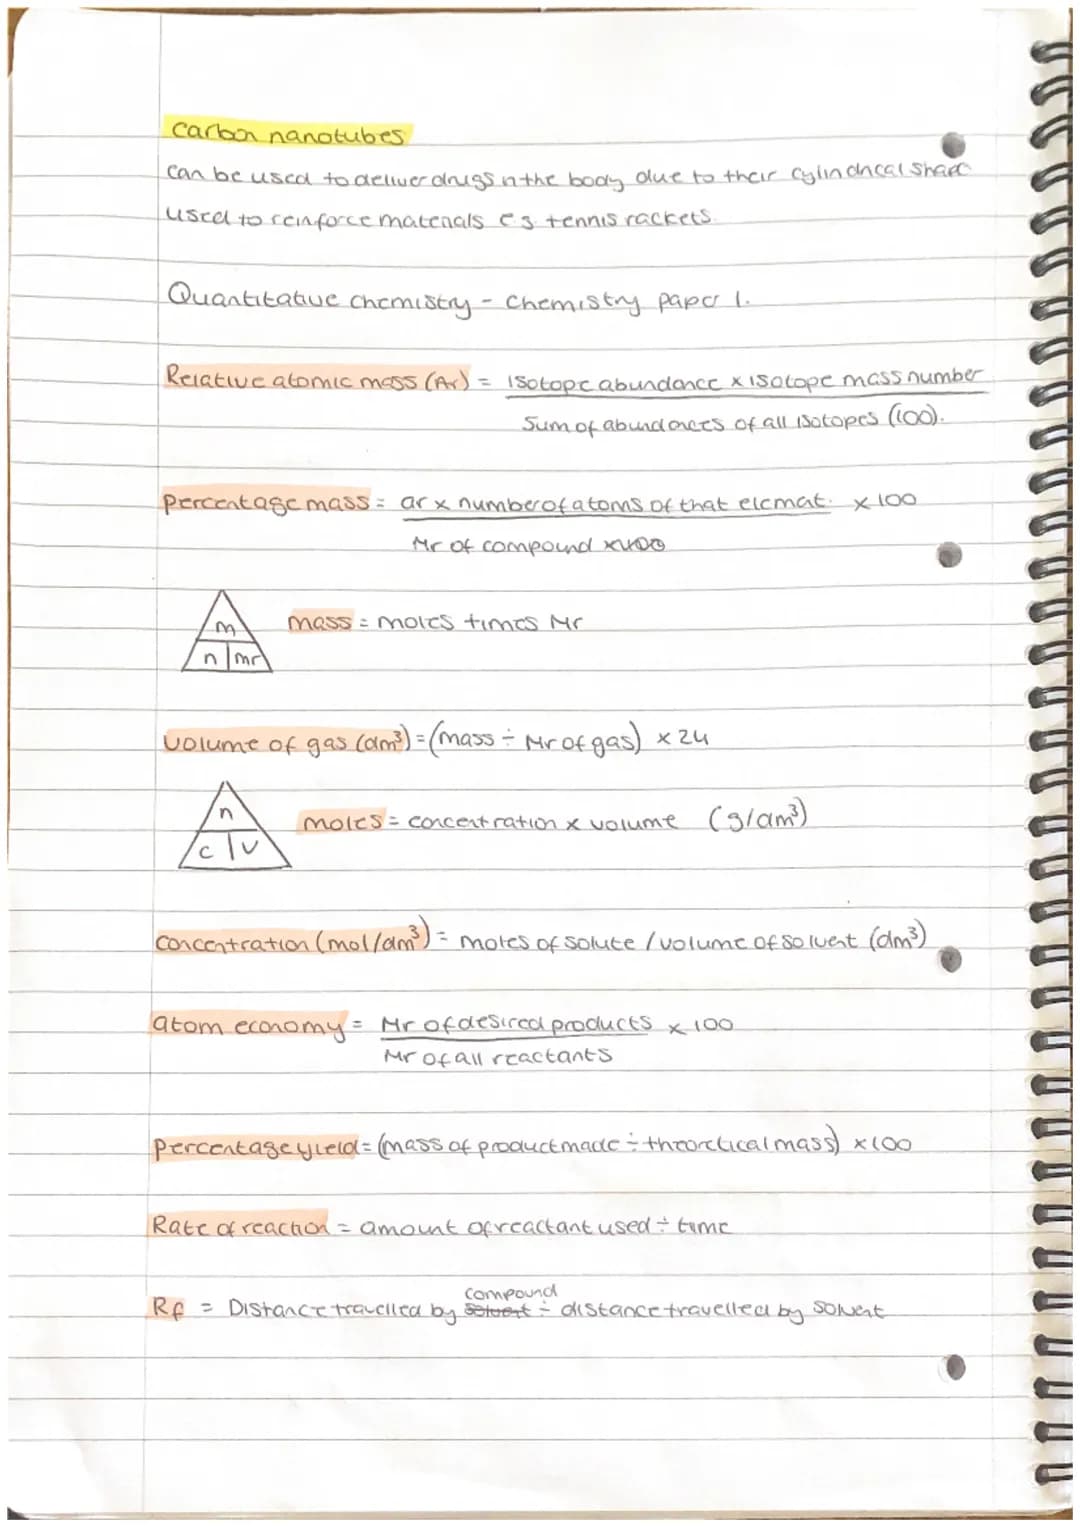 carbon nanotubes
can be used to deliver drugs in the body due to their cylindrical shape
used to reinforce materials e.g. tennis rackets.
Quantitative chemistry - Chemistry paper 1.
Relative atomic mass (Ar) = isotope abundance x isotope mass number
Sum of abundances of all isotopes (100).
percentage mass = ar x number of atoms of that element. x 100
Mr of compound
m
mass = moles times Mr
n mr
volume of gas (dm³) = (mass ÷ Mr of gas) x 24
n
moles = concentration x volume (g/dm³)
c v
concentration (mol/dm³) = moles of solute / volume of solvent (dm³)
atom economy = Mr of desired products x 100
Mr of all reactants
percentage yield = (mass of product made ÷ theoretical mass) x 100
Rate of reaction = amount of reactant used ÷ time
compound
Rf = Distance travelled by solvent ÷ distance travelled by solvent